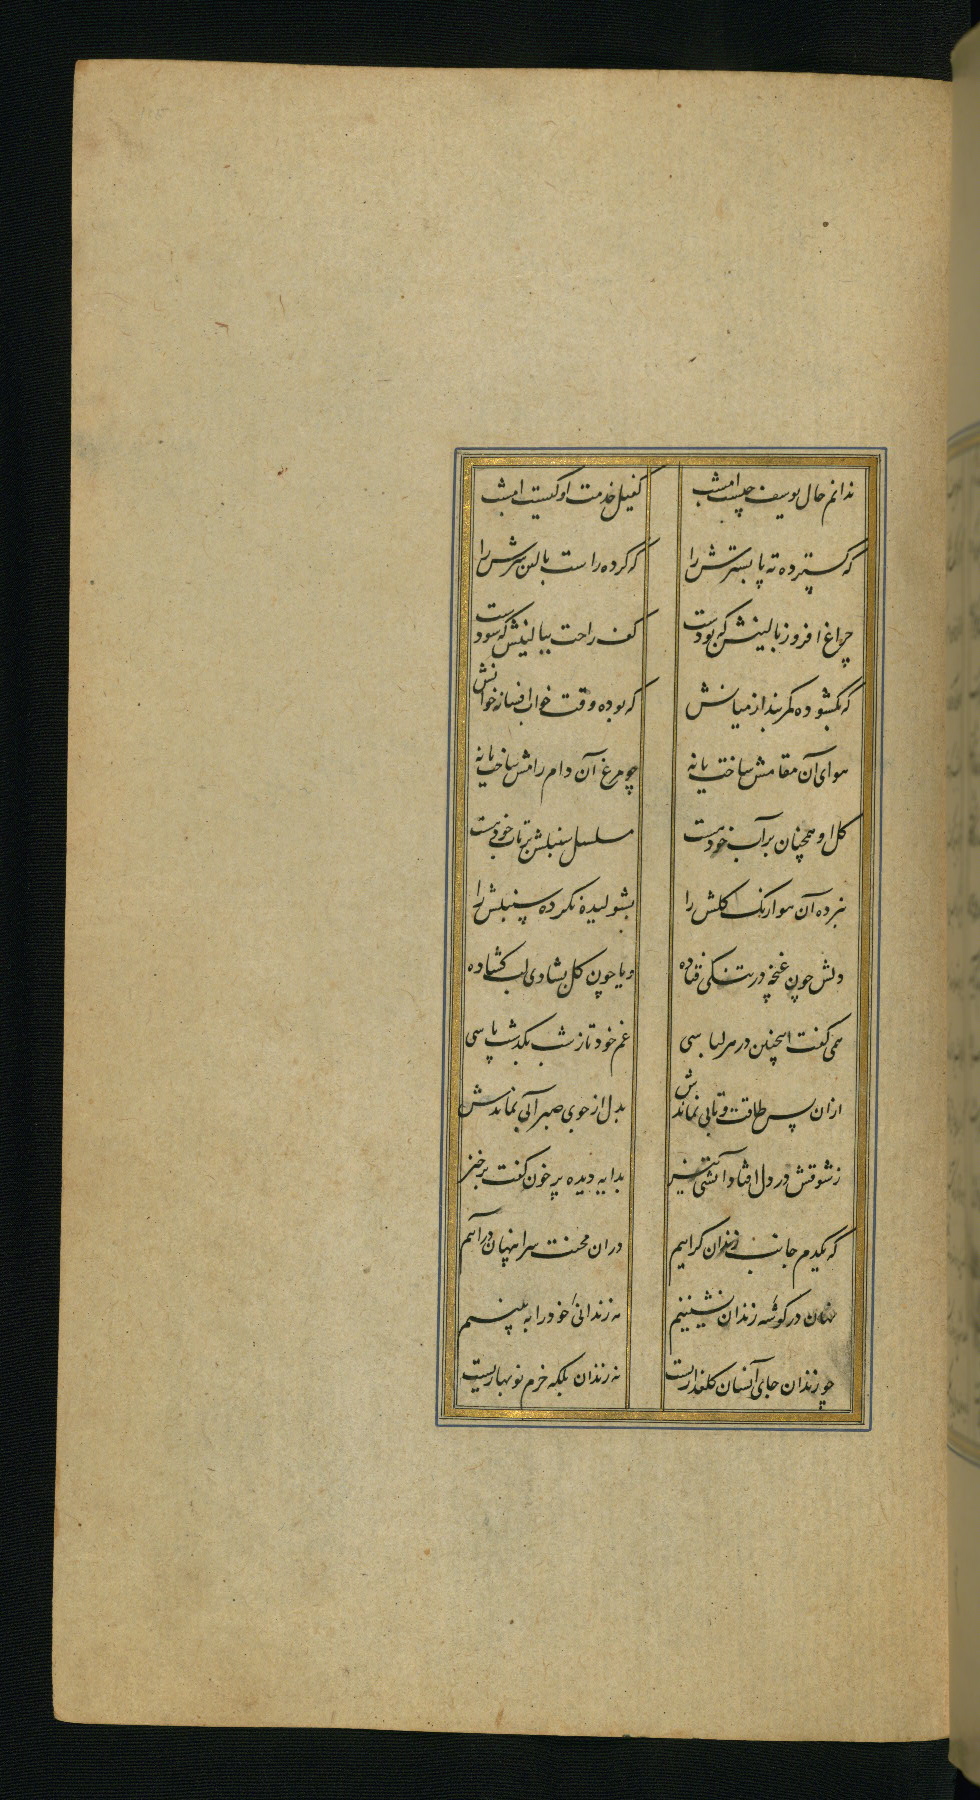 ندانم حال یوسف چیست امشب کفیل خدمت او کیست امشب
که گسترده ته پا بسترش را که کرده راست بالین سرش را
چراغ افروز بالینش که بودست کف راحت ببالینش که سودست
که بگشوده کمربند از میانش که بوده وقت خواب افسانه خوانش
هوای آن مقامش ساخت یا نه چو مرغ آن دام رامش ساخت یا نه
گل او همچنان بر آب خود هست مسلسل سنبلش بر تاب خود هست
نبرده آن هوا رنگ گلش را بشولیده نکرده سنبلش را
دلش چون غنچه در تنگی فتاده و یا چون گل بشادی لب گشاده
همی گفت اینچنین در هر لباسی غم خود تا ز شب بگذشت پاسی
ازان پس طاقت و تابی نماندش بدل از جوی صبر آبی نماندش
ز شوقش در دل افتاد آتشی تیز بدایه دیده پر خون گفت برخیز
که یکدم جانب زندان گراییم دران محنت سرا پنهان درآییم
نهان در گوشه زندان نشینیم مه زندانئ خود را به بینیم
چو زندان جای آنسان گلعذاریست نه زندان بلکه خرم نوبهاریست